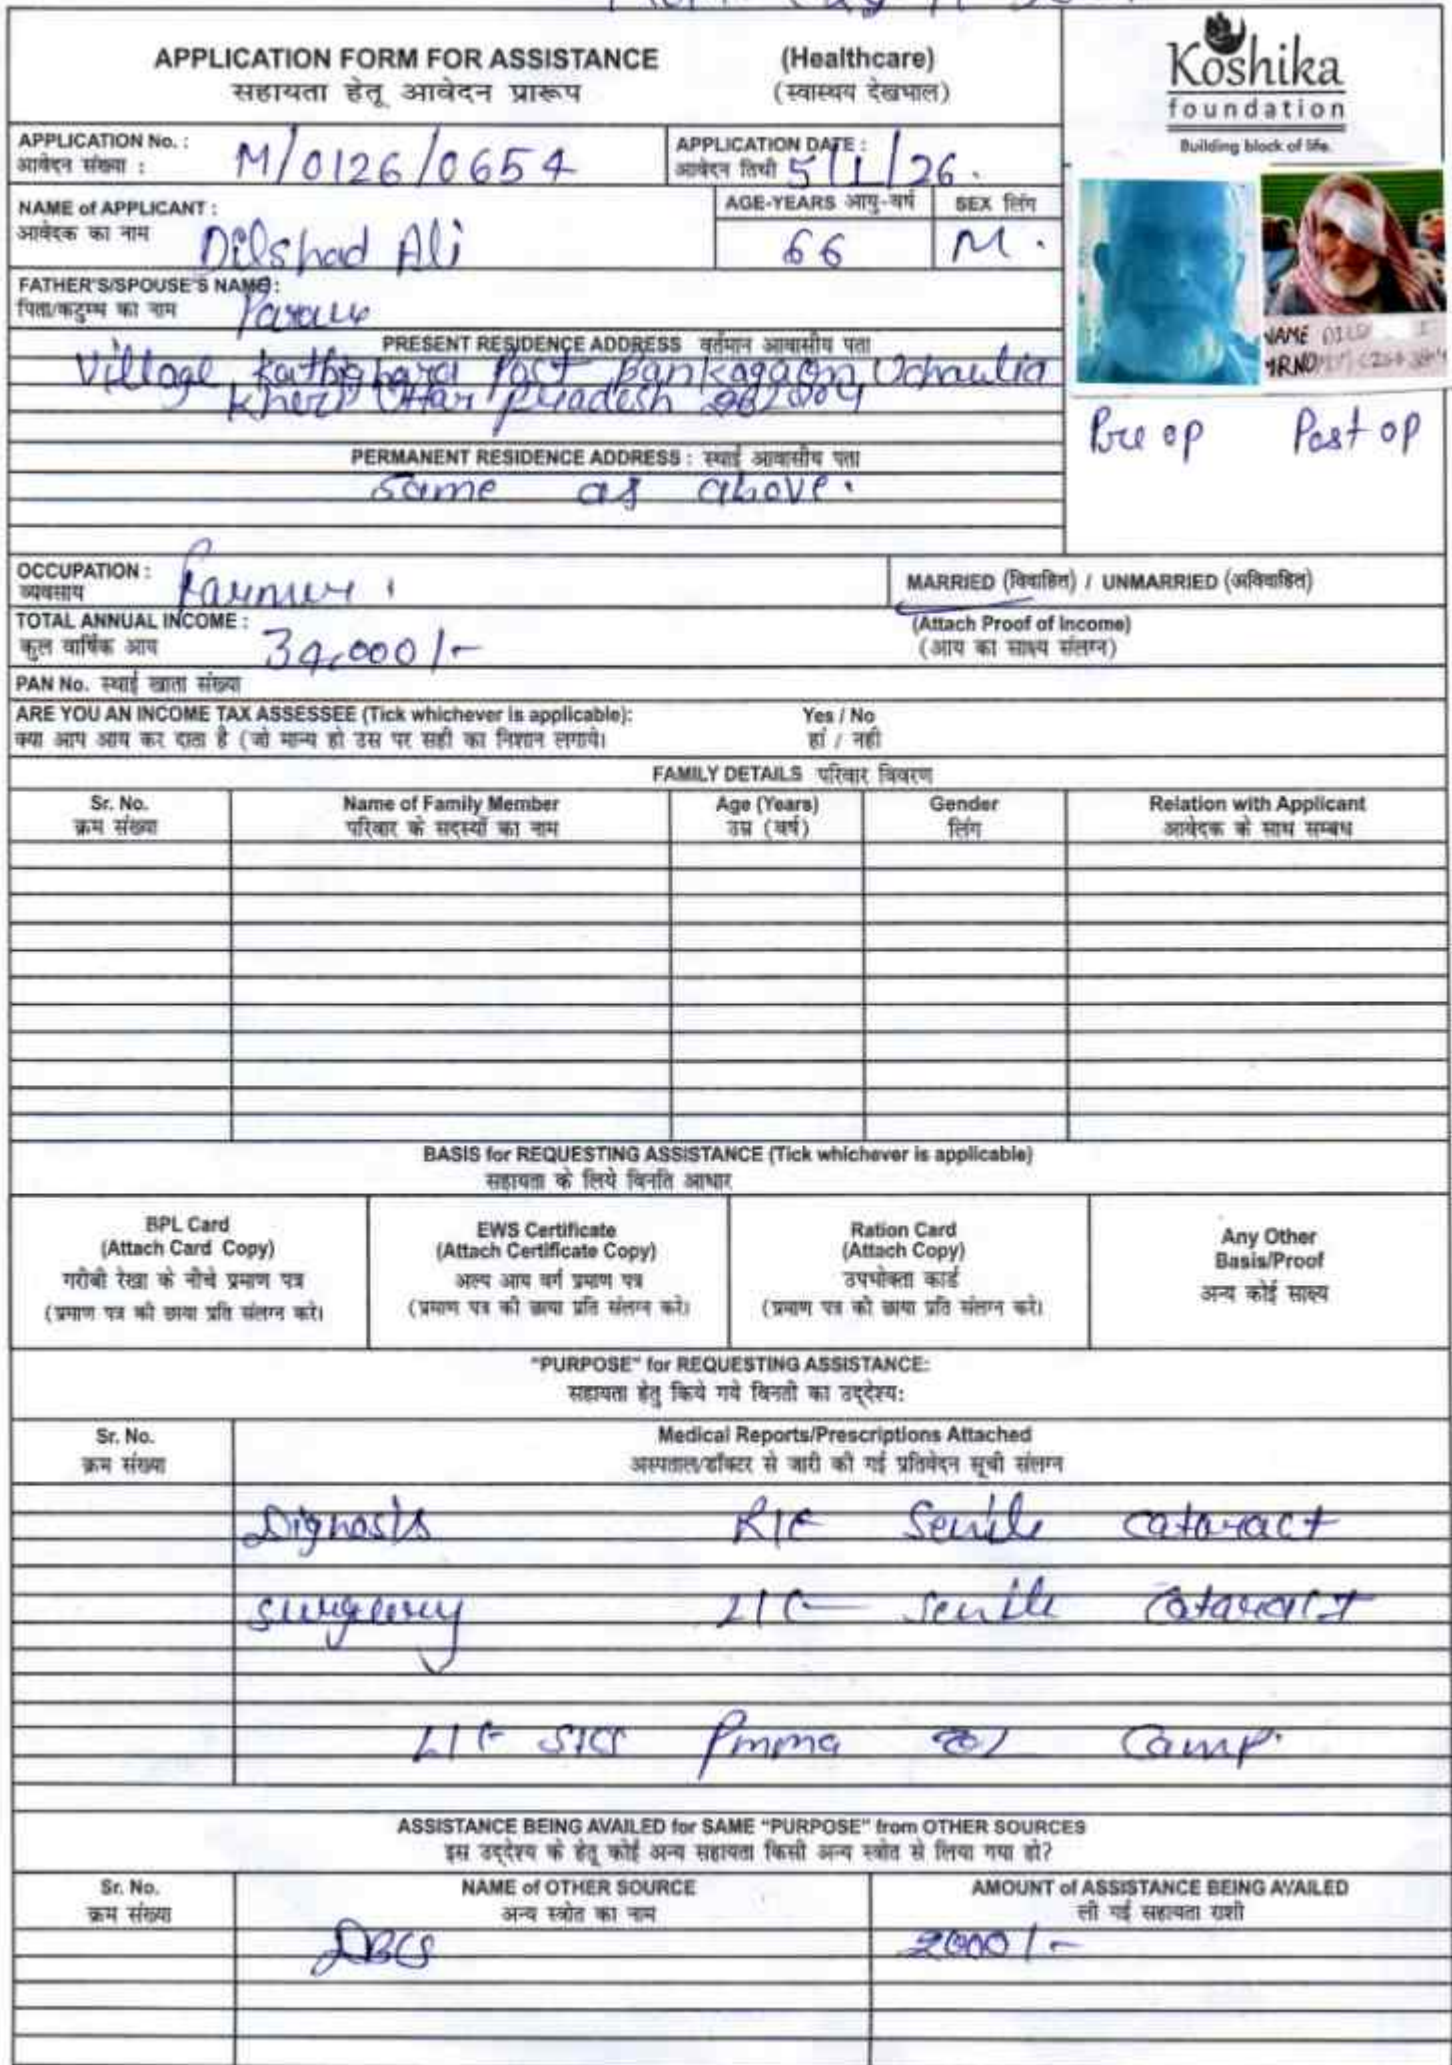 APPLICATION FORM FOR ASSISTANCE (Healthcare)
सहायता हेतू आवेदन प्रारूप (स्वास्थय देखभाल)
Koshika
foundation
Building block of life.
APPLICATION No. :
आवेदन संख्या : M/0126/0654
APPLICATION DATE :
आवेदन तिथी 5/1/26.
NAME of APPLICANT :
आवेदक का नाम Dilshad Ali
AGE-YEARS आयु-वर्ष
66
SEX लिंग
M.
FATHER'S/SPOUSE'S NAME:
पिता/कटुम्ब का नाम
PRESENT RESIDENCE ADDRESS वर्तमान आवासीय पता
Village Post Bankagaon Uchaulia
Kheri Uttar Pradesh
PERMANENT RESIDENCE ADDRESS : स्थाई आवासीय पता
Same as above.
NAME
MRNO
Pre op Post op
OCCUPATION :
व्यवसाय Farmer
MARRIED (विवाहित) / UNMARRIED (अविवाहित)
TOTAL ANNUAL INCOME :
कुल वार्षिक आय 34,000/-
(Attach Proof of Income)
(आय का साक्ष्य संलग्न)
PAN No. स्थाई खाता संख्या
ARE YOU AN INCOME TAX ASSESSEE (Tick whichever is applicable): Yes / No
क्या आप आय कर दाता है (जो मान्य हो उस पर सही का निशान लगाये। हां / नही
FAMILY DETAILS परिवार विवरण
Sr. No. Name of Family Member Age (Years) Gender Relation with Applicant
क्रम संख्या परिवार के सदस्यों का नाम उम्र (वर्ष) लिंग आवेदक के साथ सम्बध
BASIS for REQUESTING ASSISTANCE (Tick whichever is applicable)
सहायता के लिये विनति आधार
BPL Card
(Attach Card Copy)
गरीबी रेखा के नीचे प्रमाण पत्र
(प्रमाण पत्र की छाया प्रति संलग्न करे।
EWS Certificate
(Attach Certificate Copy)
अल्प आय वर्ग प्रमाण पत्र
(प्रमाण पत्र की छाया प्रति संलग्न करे।
Ration Card
(Attach Copy)
उपभोक्ता कार्ड
(प्रमाण पत्र की छाया प्रति संलग्न करे।
Any Other
Basis/Proof
अन्य कोई साक्ष्य
"PURPOSE" for REQUESTING ASSISTANCE:
सहायता हेतु किये गये विनती का उद्देश्य:
Sr. No. Medical Reports/Prescriptions Attached
क्रम संख्या अस्पताल/डॉक्टर से जारी की गई प्रतिवेदन सूची संलग्न
Dignosis R/E Senile cataract
surgery L/E Senile cataract
L/E SICS Pmma Camp.
ASSISTANCE BEING AVAILED for SAME "PURPOSE" from OTHER SOURCES
इस उद्देश्य के हेतू कोई अन्य सहायता किसी अन्य स्त्रोत से लिया गया हो?
Sr. No. NAME of OTHER SOURCE AMOUNT of ASSISTANCE BEING AVAILED
क्रम संख्या अन्य स्त्रोत का नाम ली गई सहायता राशी
DBCS 2000/-